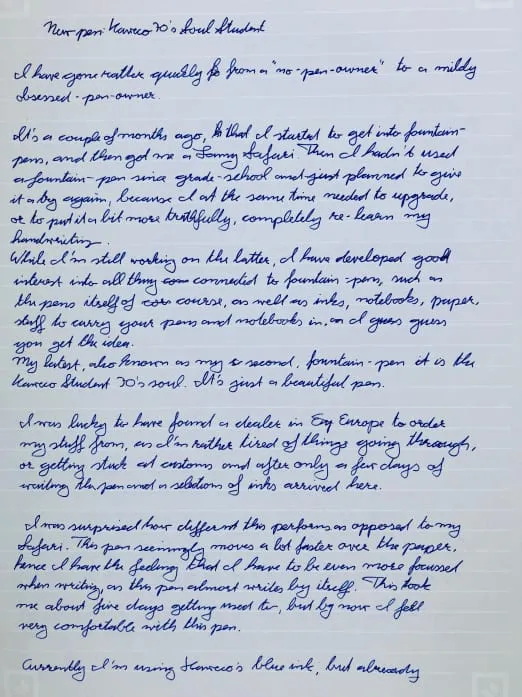 New pen: Kaweco 70's Soul Student
I have gone rather quickly fo from a "no-pen-owner" to a mildly
obsessed-pen-owner.
It's a couple of months ago, to that I started to get into fountain-
pens, and then got me a Lamy Safari. Then I hadn't used
a fountain-pen since grade-school and just planned to give
it a try again, because I at the same time needed to upgrade,
or to put it a bit more truthfully, completely re-learn my
handwriting.
While I'm still working on the latter, I have developed good
interest into all thing con connected to fountain-pens, such as
the pens itself of cors course, as well as inks, notebooks, paper,
stuff to carry your pens and notebooks in, an I guess guess
you get the idea.
My latest, also known as my s second, fountain-pen it is the
Kaweco Student 70's soul. It's just a beautiful pen.
I was lucky to have found a dealer in Eu Europe to order
my stuff from, as I'm rather tired of things going through,
or getting stuck at customs and after only a few days of
waiting the pen and a selections of inks arrived here.
I was surprised how different this performs as opposed to my
Safari. This pen seemingly moves a lot faster over the paper,
hence I have the feeling that I have to be even more focussed
when writing, as this pen almost writes by itself. This took
me about five days getting used to, but by now I fell
very comfortable with this pen.
Currently I'm using Kaweco's blue ink, but already